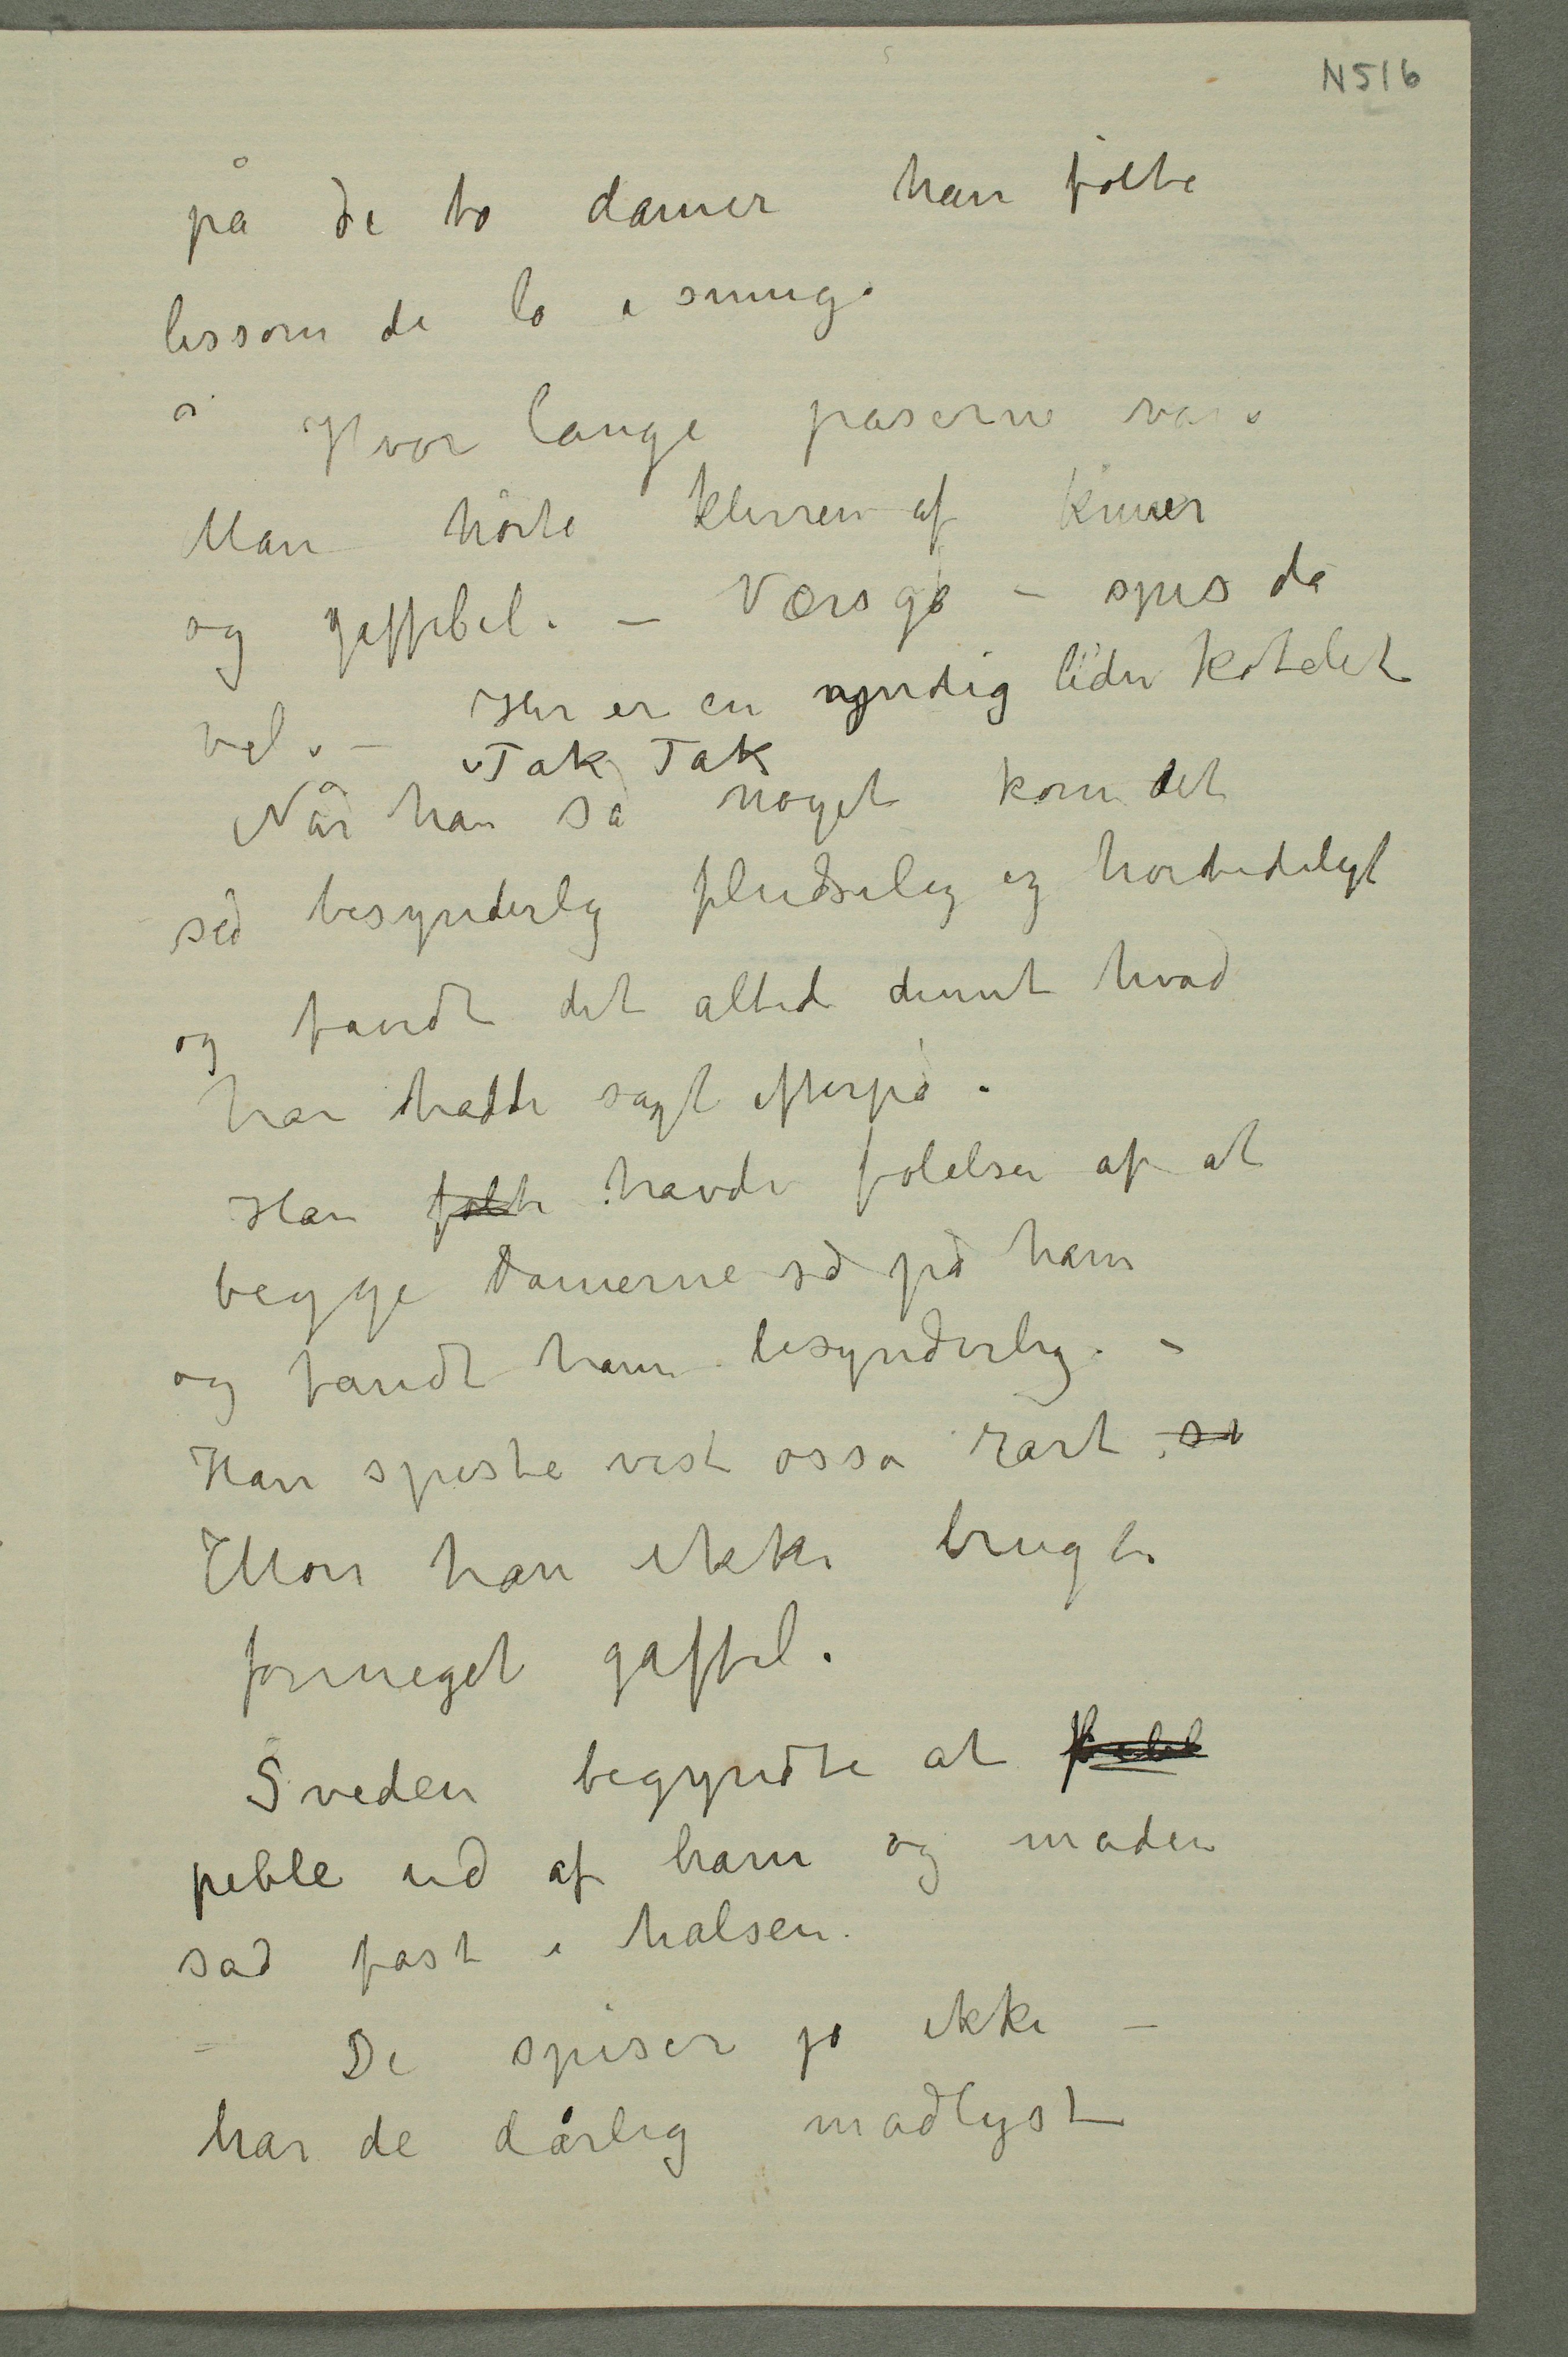 N516
på de to damer han følte
lissom de lo i smug.
Hvor lange paserne var.
Man hørte klirren af kniver
og gaffebel. – Værsgo – spis da
vel. – Her er en nyndig liden kotelet
Tak, Tak
Når han sa noget kom det
så besynderlig pludselig og hortideligt
og fandt det altid dumt hvad
han hadde sagt efterpå.
Han følte havde følelsen af at
begge Damerne så på ham
og fandt ham besynderlig. –
Han spiste vist osså rart så
Mon han ikke brugte
formeget gaffel.
Sveden begyndte at
peble ud af ham og maden
sad fast i halsen.
– De spiser jo ikke –
har de dårlig madlyst